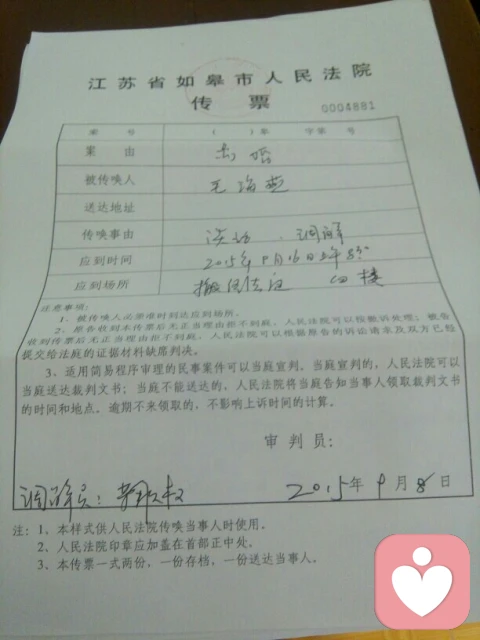 江苏省如皋市人民法院
传 票
0004881
案 号 ( )年 字第 号
案 由 离婚
被传唤人
送达地址
传唤事由 谈话、调解
应到时间 2015年9月16日上午8:30
应到场所 四楼
注意事项：
1、被传唤人必须准时到达应到场所。
2、原告收到本传票后无正当理由拒不到庭，人民法院可以按撤诉处理；被告
收到传票后无正当理由拒不到庭，人民法院可以根据原告的诉讼请求及双方已经
提交给法庭的证据材料缺席判决。
3、适用简易程序审理的民事案件可以当庭宣判。当庭宣判的，人民法院可以
当庭送达裁判文书；当庭不能送达的，人民法院将当庭告知当事人领取裁判文书
的时间和地点。逾期不来领取的，不影响上诉时间的计算。
审判员：
调解员：
2015年9月8日
注：1、本样式供人民法院传唤当事人时使用。
2、人民法院印章应加盖在首部正中处。
3、本传票一式两份，一份存档，一份送达当事人。